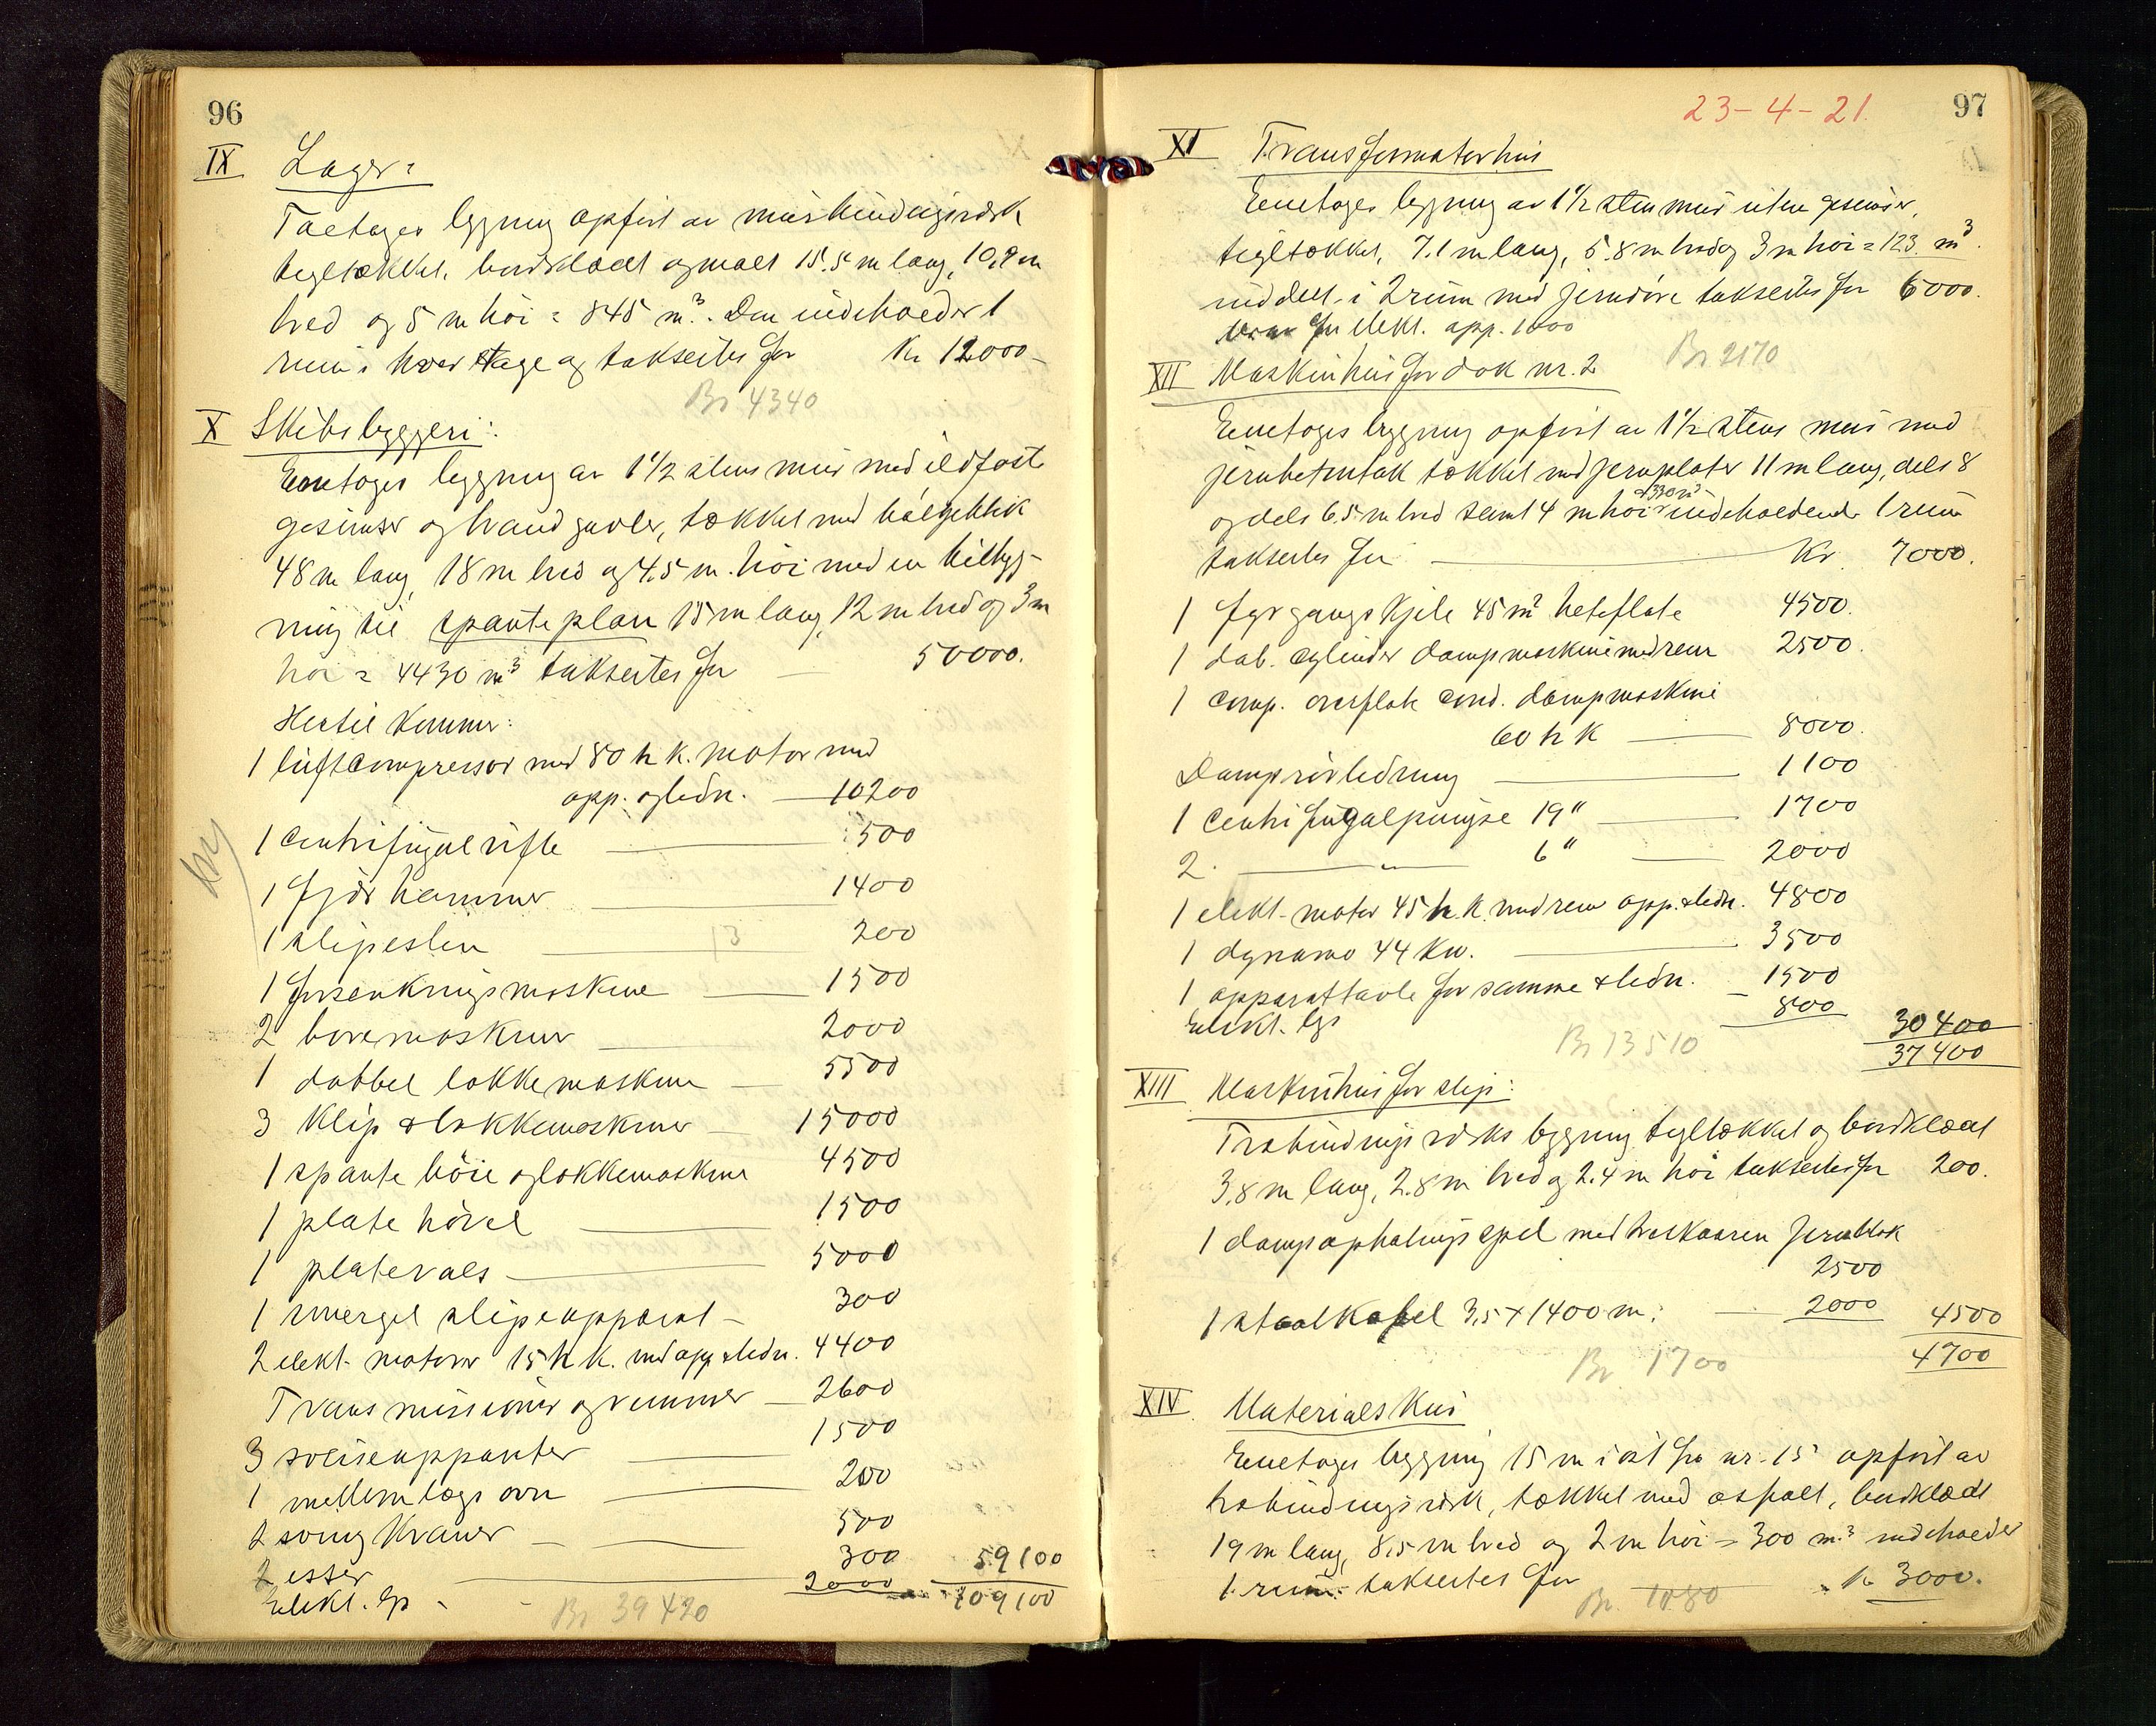 96
IX Lager:
Toetages bygning opført av murbindingsverk
tegltækket, bordklædt og malt 15.5 m lang, 10,9 m
bred og 5 m høi = 845 m³. Den indeholder 1
rum i hver etage og takseres for Kr 12000-
Br 4340
X Skibsbyggeri:
Enetages bygning av 1 1/2 stens mur med ildfaste
gesimser og brandgavler, tækket med bølgeblik
48 m lang, 18 m bred og 4.5 m. høi med en tilbyg-
ning til spanteplan 15 m lang, 12 m bred og 3 m
høi = 4430 m³ takseres for — 50000.
Hertil kommer:
1 luftcompressor med 80 h k. motor med
app. og ledn. — 10200
1 Centrifugalvifte — 500
1 fjærhammer — 1400
1 slipesten — 200
1 forsenkningsmaskine — 1500
2 boremaskiner — 2000
1 dobbel lokkemaskine — 5500
3 klip & lokkemaskiner — 15000
1 spante böie og lokkemaskine 4500
1 plate hövel — 1500
1 platevals — 5000
1 smergel slipeapparat — 300
2 elekt. motorer 15 h k. med app & ledn. 4400
Transmissioner og remmer — 2600
3 sveiseapparater — 1500
1 mellemlægs ovn — 200
2 sving kraner — 500
2 esser — 300 59100
Elekt. lys - 2000 109100
Br 39420
23-4-21. 97
XI Transformatorhus
Enetages bygning av 1 1/2 stens mur uten gesimser,
tegltækket, 7.1 m lang, 5.8 m bred og 3 m høi = 123 m³.
inddelt i 2 rum med jerndøre takseres for 6000.
for elekt. app. 1000
Br 2170
XII Maskinhus for dok nr. 2
Enetages bygning opført av 1 1/2 stens mur med
jernbetontak tækket med jernplater 11 m lang, dels 8
og dels 6.5 m bred samt 4 m høi = 330 m³ indeholdende 1 rum
takseres for — Kr. 7000.
1 fyrgangs kjele 45 m² heteflate 4500.
1 dob. cylinder dampmaskine med rem 2500.
1 comp. overflate cond. dampmaskine
60 h k — 8000.
Damprörledning — 1100
1 Centrifugalpumpe 19" — 1700
2 — " — 6" — 2000
1 elekt. motor 45 h. k. med rem app. & ledn. 4800
1 dynamo 44 Kw. — 3500
1 apparattavle for samme & ledn. — 1500
Elekt. lys 800 30400
Br 13510 37400
XIII Maskinhus for slip:
Træbindingsverks bygning tegltækket og bordklædt
3,8 m lang, 2.8 m bred og 2.4 m høi takseres for 200.
1 dampophalingsspel med jernblok
2500
1 staalkabel 3,5 x 1400 m: — 2000 4500
Br 1700 4700
XIV Materialskur
Enetages bygning 15 m i øst fra nr. 15 opført av
træbindingsverk, tækket med asfalt, bordklædt
19 m lang, 8,5 m bred og 2 m høi = 300 m³ indeholder
1 rum takseres for kr 3000.
Br. 1080